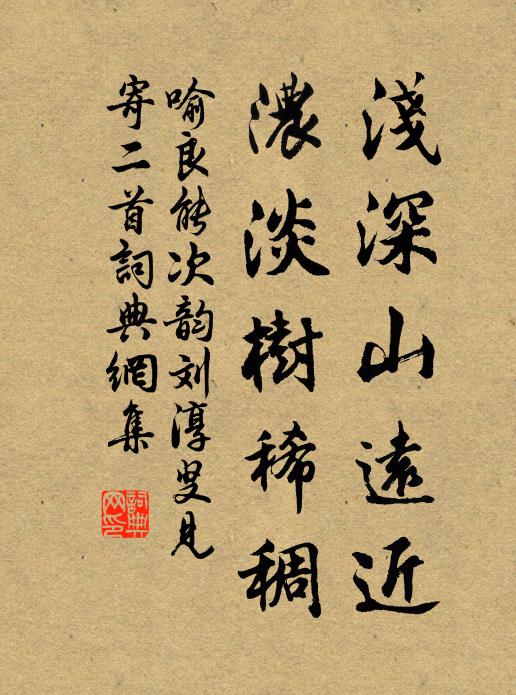 淺深山遠近
濃淡樹稀稠
喻良能次韵刘淳叟見
寄二首詞典網集
詞典
网印